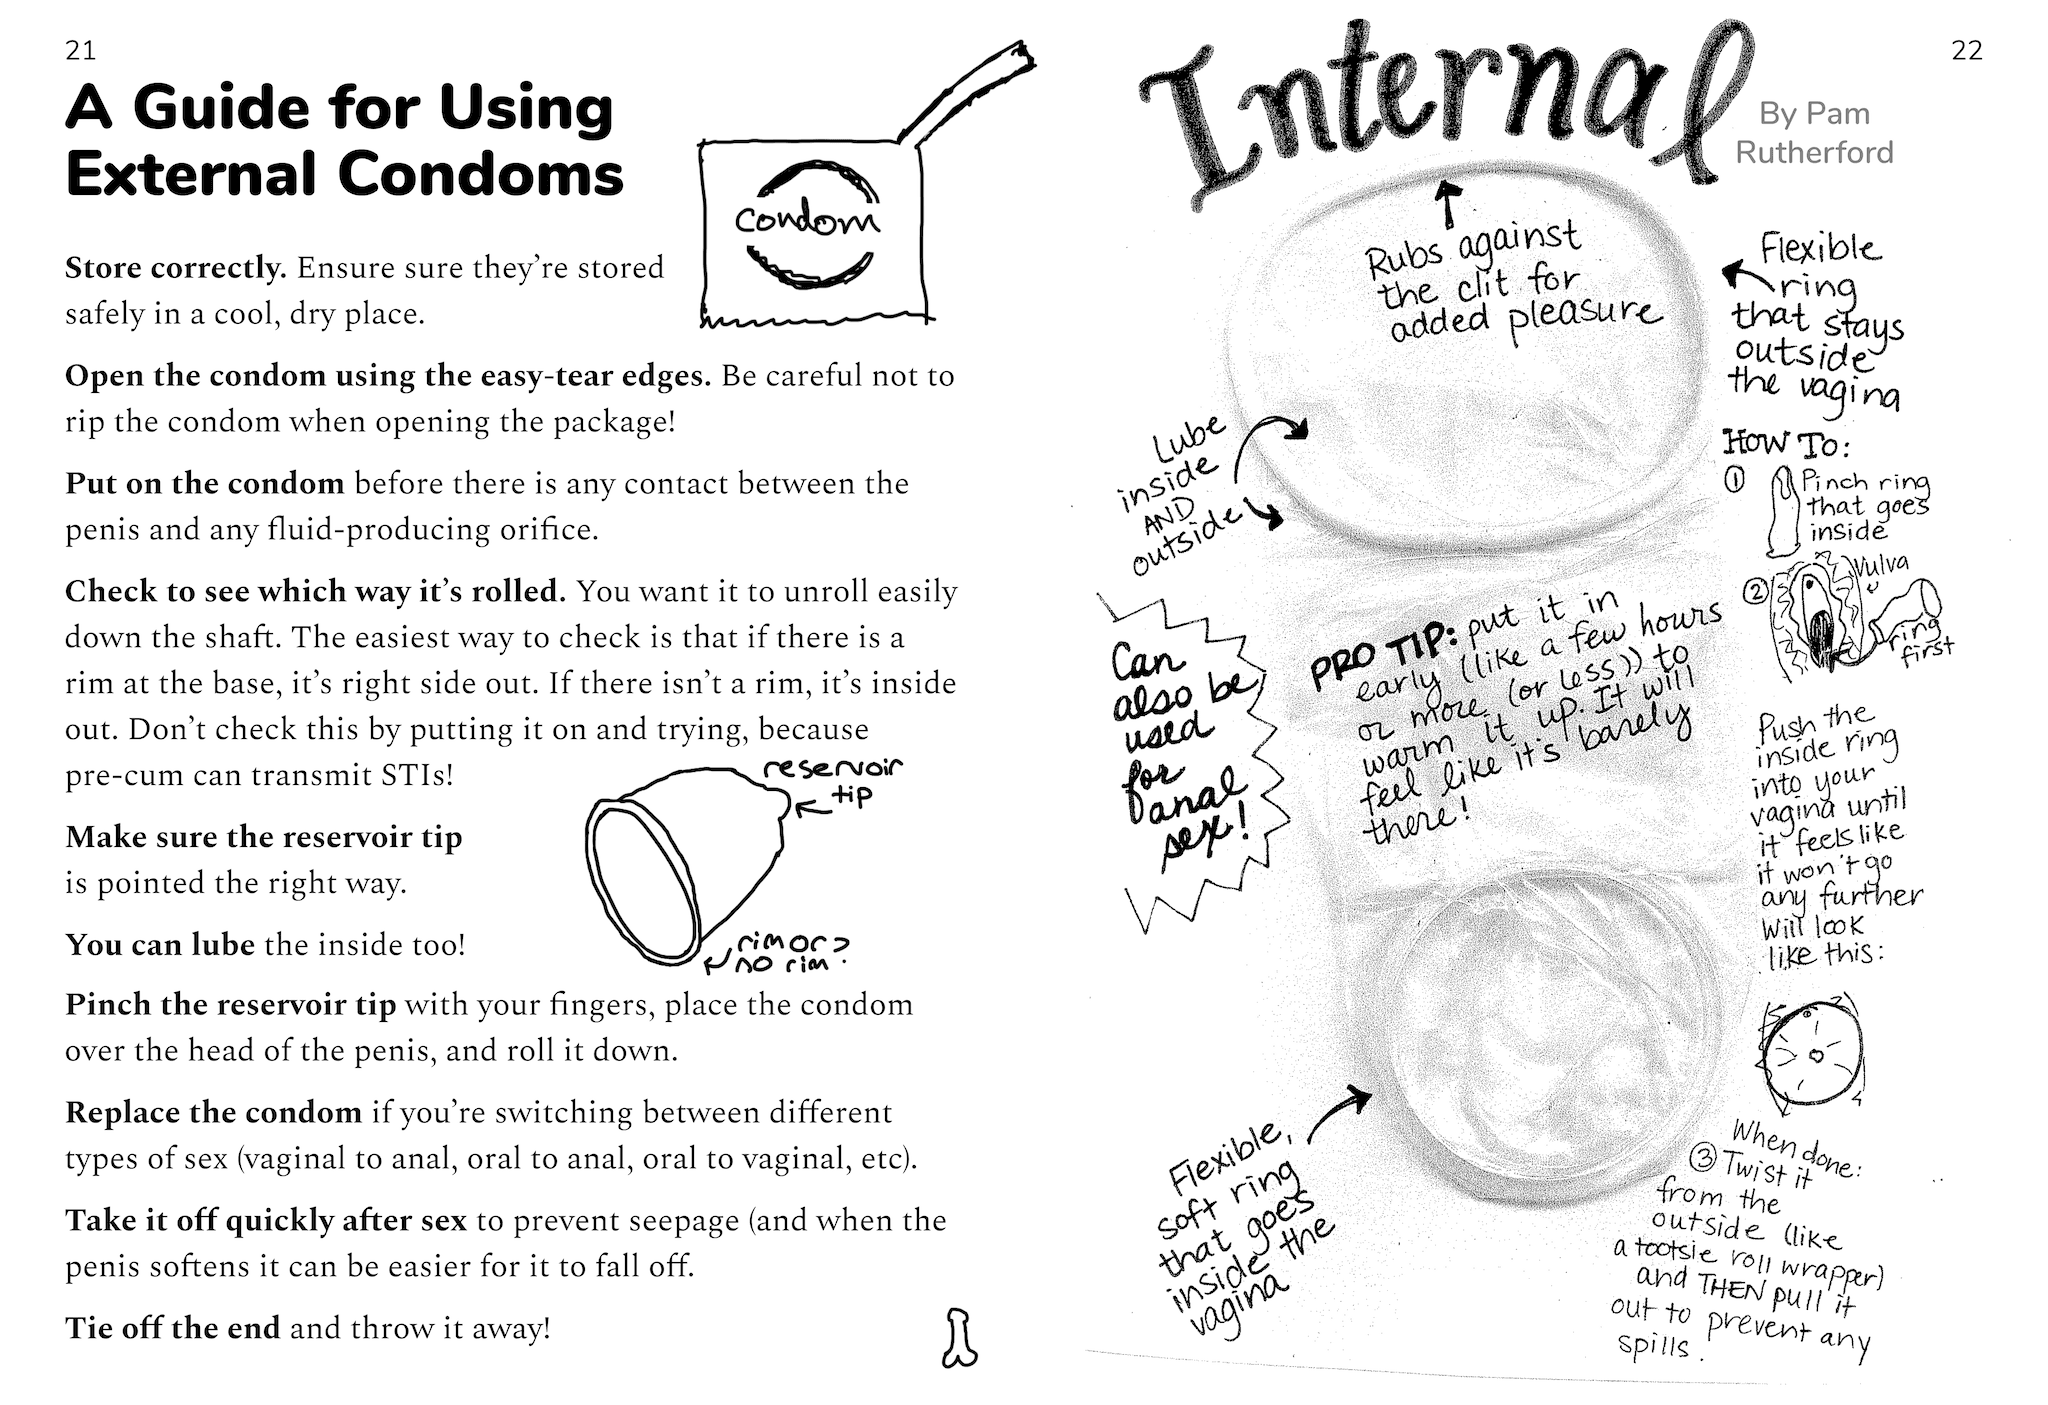 21
A Guide for Using
External Condoms
condom
Store correctly. Ensure sure they're stored
safely in a cool, dry place.
Open the condom using the easy-tear edges. Be careful not to
rip the condom when opening the package!
Put on the condom before there is any contact between the
penis and any fluid-producing orifice.
Check to see which way it's rolled. You want it to unroll easily
down the shaft. The easiest way to check is that if there is a
rim at the base, it's right side out. If there isn't a rim, it's inside
out. Don't check this by putting it on and trying, because
pre-cum can transmit STIs!
reservoir
tip
Make sure the reservoir tip
is pointed the right way.
You can lube the inside too!
rim or
no rim?
Pinch the reservoir tip with your fingers, place the condom
over the head of the penis, and roll it down.
Replace the condom if you're switching between different
types of sex (vaginal to anal, oral to anal, oral to vaginal, etc).
Take it off quickly after sex to prevent seepage (and when the
penis softens it can be easier for it to fall off.
Tie off the end and throw it away!
22
Internal
By Pam
Rutherford
Rubs against
the clit for
added pleasure
Flexible
ring
that stays
outside
the vagina
Lube
inside
AND
outside
HOW TO:
① Pinch ring
that goes
inside
②
Vulva
ring
first
Can
also be
used
for
anal
sex!
PRO TIP: put it in
early (like a few hours
or more (or less)) to
warm it up. It will
feel like it's barely
there!
Push the
inside ring
into your
vagina until
it feels like
it won't go
any further
will look
like this:
Flexible,
soft ring
that goes
inside the
vagina
When done:
③ Twist it
from the
outside (like
a tootsie roll wrapper)
and THEN pull it
out to prevent any
spills.